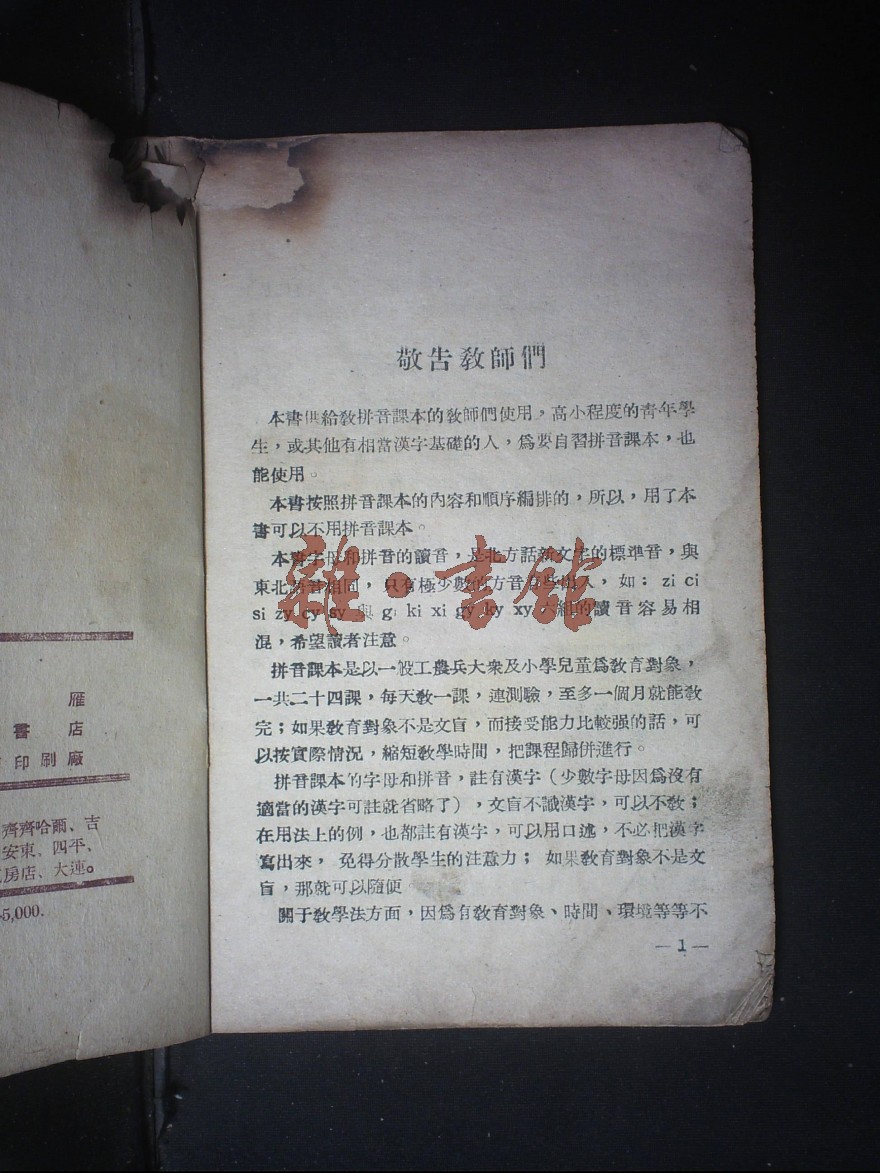 敬告教師們
本書供給教拼音課本的教師們使用，高小程度的青年學
生，或其他有相當漢字基礎的人，爲要自習拼音課本，也
能使用。
本書按照拼音課本的內容和順序編排的，所以，用了本
書可以不用拼音課本。
本書字母和拼音的讀音，是北方話新文字的標準音，與
東北語音相同，只有極少數的方音有些出入，如：zi ci
si zy cy sy 與 gi ki xi gy ky xy 六組的讀音容易相
混，希望讀者注意。
拼音課本是以一般工農兵大衆及小學兒童爲敎育對象，
一共二十四課，每天敎一課，連測驗，至多一個月就能敎
完；如果敎育對象不是文盲，而接受能力比較强的話，可
以按實際情況，縮短敎學時間，把課程歸併進行。
拼音課本的字母和拼音，註有漢字（少數字母因爲沒有
適當的漢字可註就省略了），文盲不識漢字，可以不敎；
在用法上的例，也都註有漢字，可以用口述，不必把漢字
寫出來，免得分散學生的注意力；如果敎育對象不是文
盲，那就可以隨便
關于敎學法方面，因爲有敎育對象、時間、環境等等不
—1—
雁
書店
印刷廠
齊齊哈爾、吉
安東、四平、
房店、大連。
5,000.
雜·書館